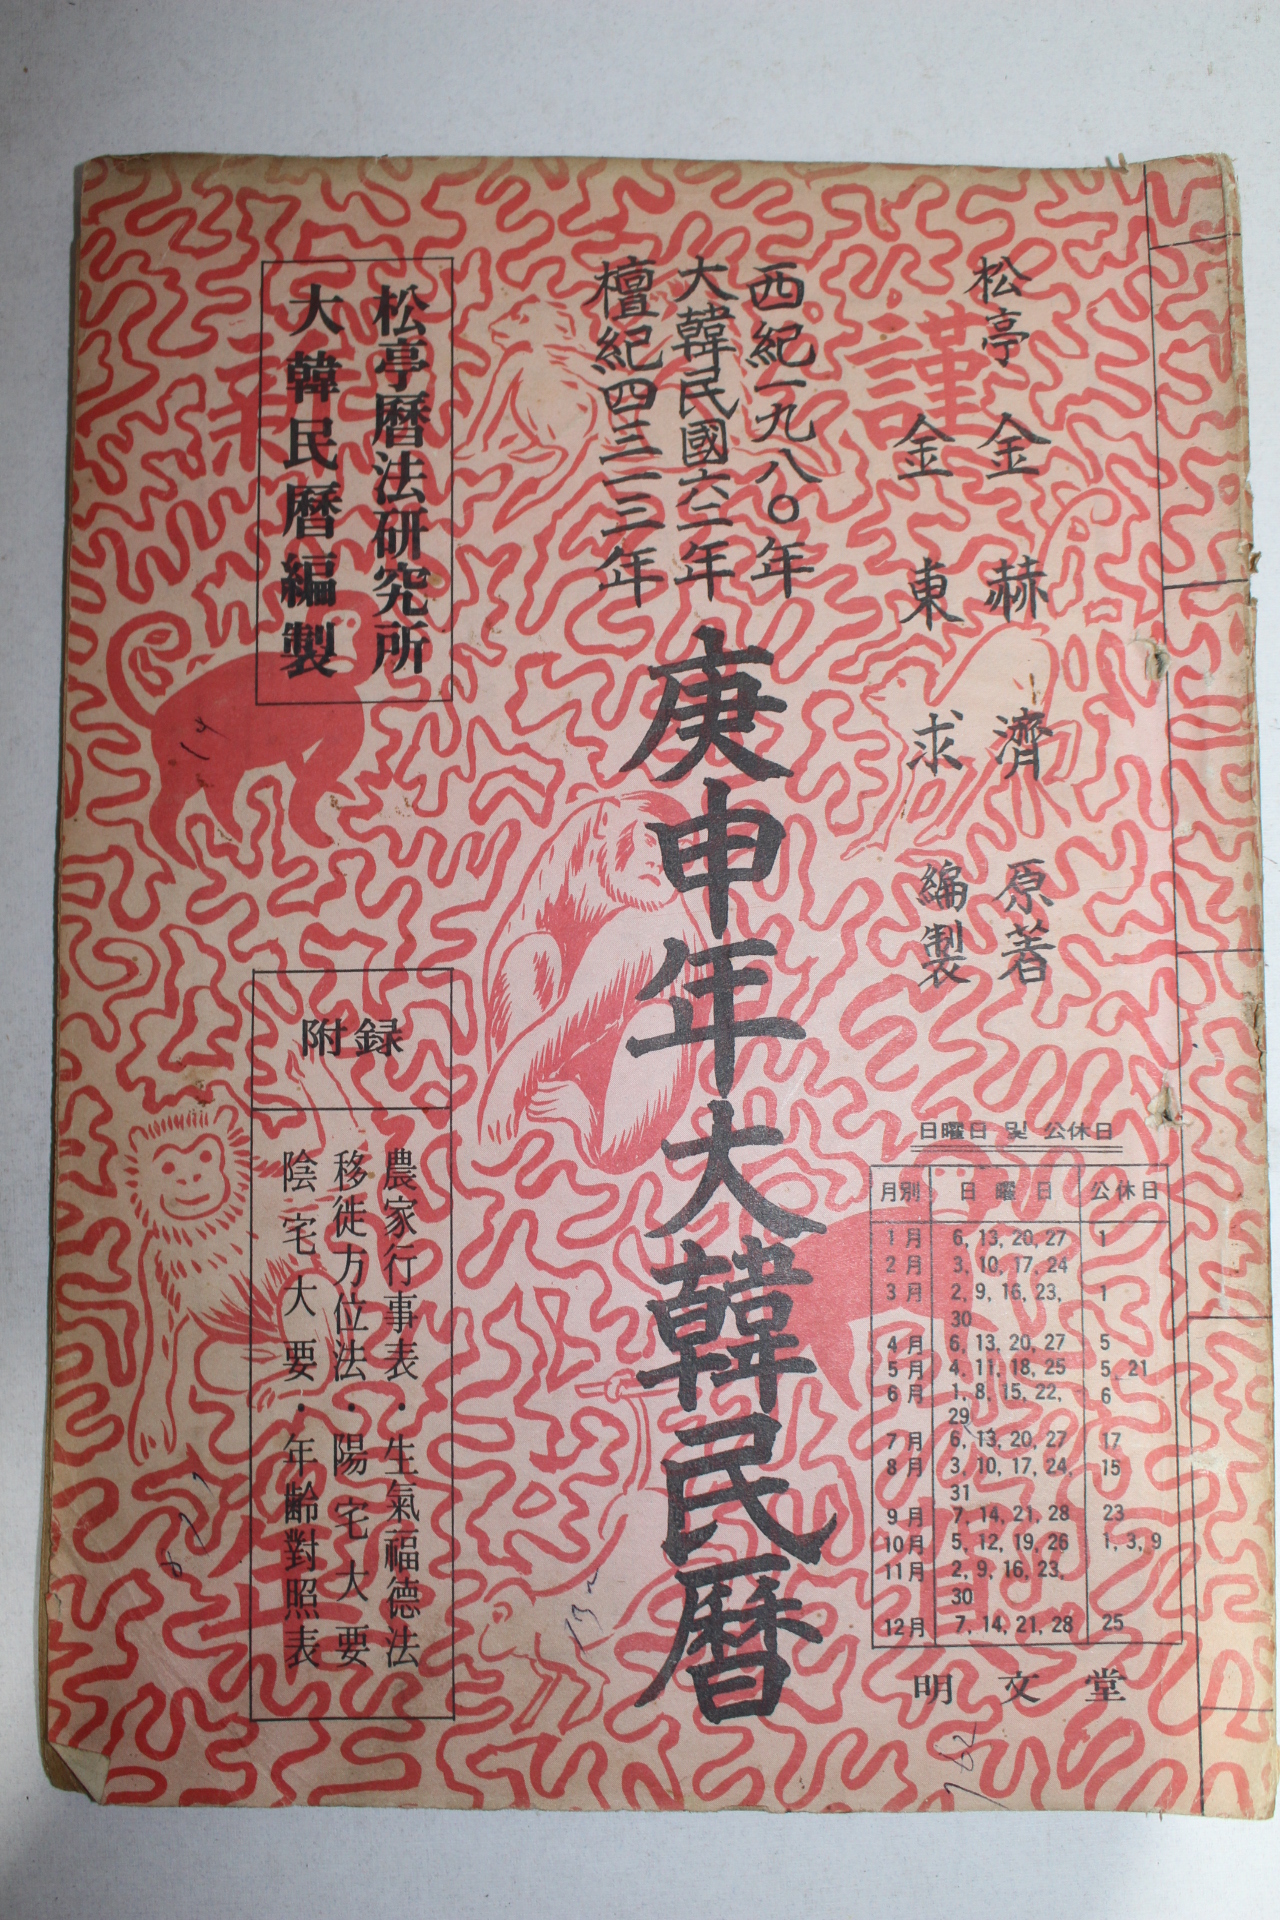 松亭 金赫濟 原著
金東求 編製
謹
賀
新
年
西紀一九八〇年
大韓民國六二年
檀紀四三一三年
庚申年大韓民曆
松亭曆法研究所
大韓民曆編製
附錄
農家行事表・生氣福德法
移徙方位法・陽宅大要
陰宅大要・年齡對照表
日曜日 및 公休日
月別 日曜日 公休日
1月 6, 13, 20, 27 1
2月 3, 10, 17, 24
3月 2, 9, 16, 23, 1
30
4月 6, 13, 20, 27 5
5月 4, 11, 18, 25 5, 21
6月 1, 8, 15, 22, 6
29
7月 6, 13, 20, 27 17
8月 3, 10, 17, 24, 15
31
9月 7, 14, 21, 28 23
10月 5, 12, 19, 26 1, 3, 9
11月 2, 9, 16, 23,
30
12月 7, 14, 21, 28 25
明文堂